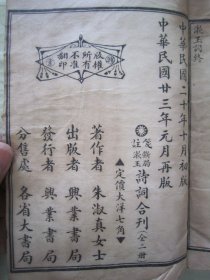 漱玉詞終
中華民國二十年十月初版
中華民國廿三年元月再版
箋註
斷腸漱玉
詩詞合刊
全二冊
▲定價大洋七角▼
版權所有
不准翻印
著作者 朱淑真女士
出版者 興業書局
發行者 興業書局
分售處 各省大書局